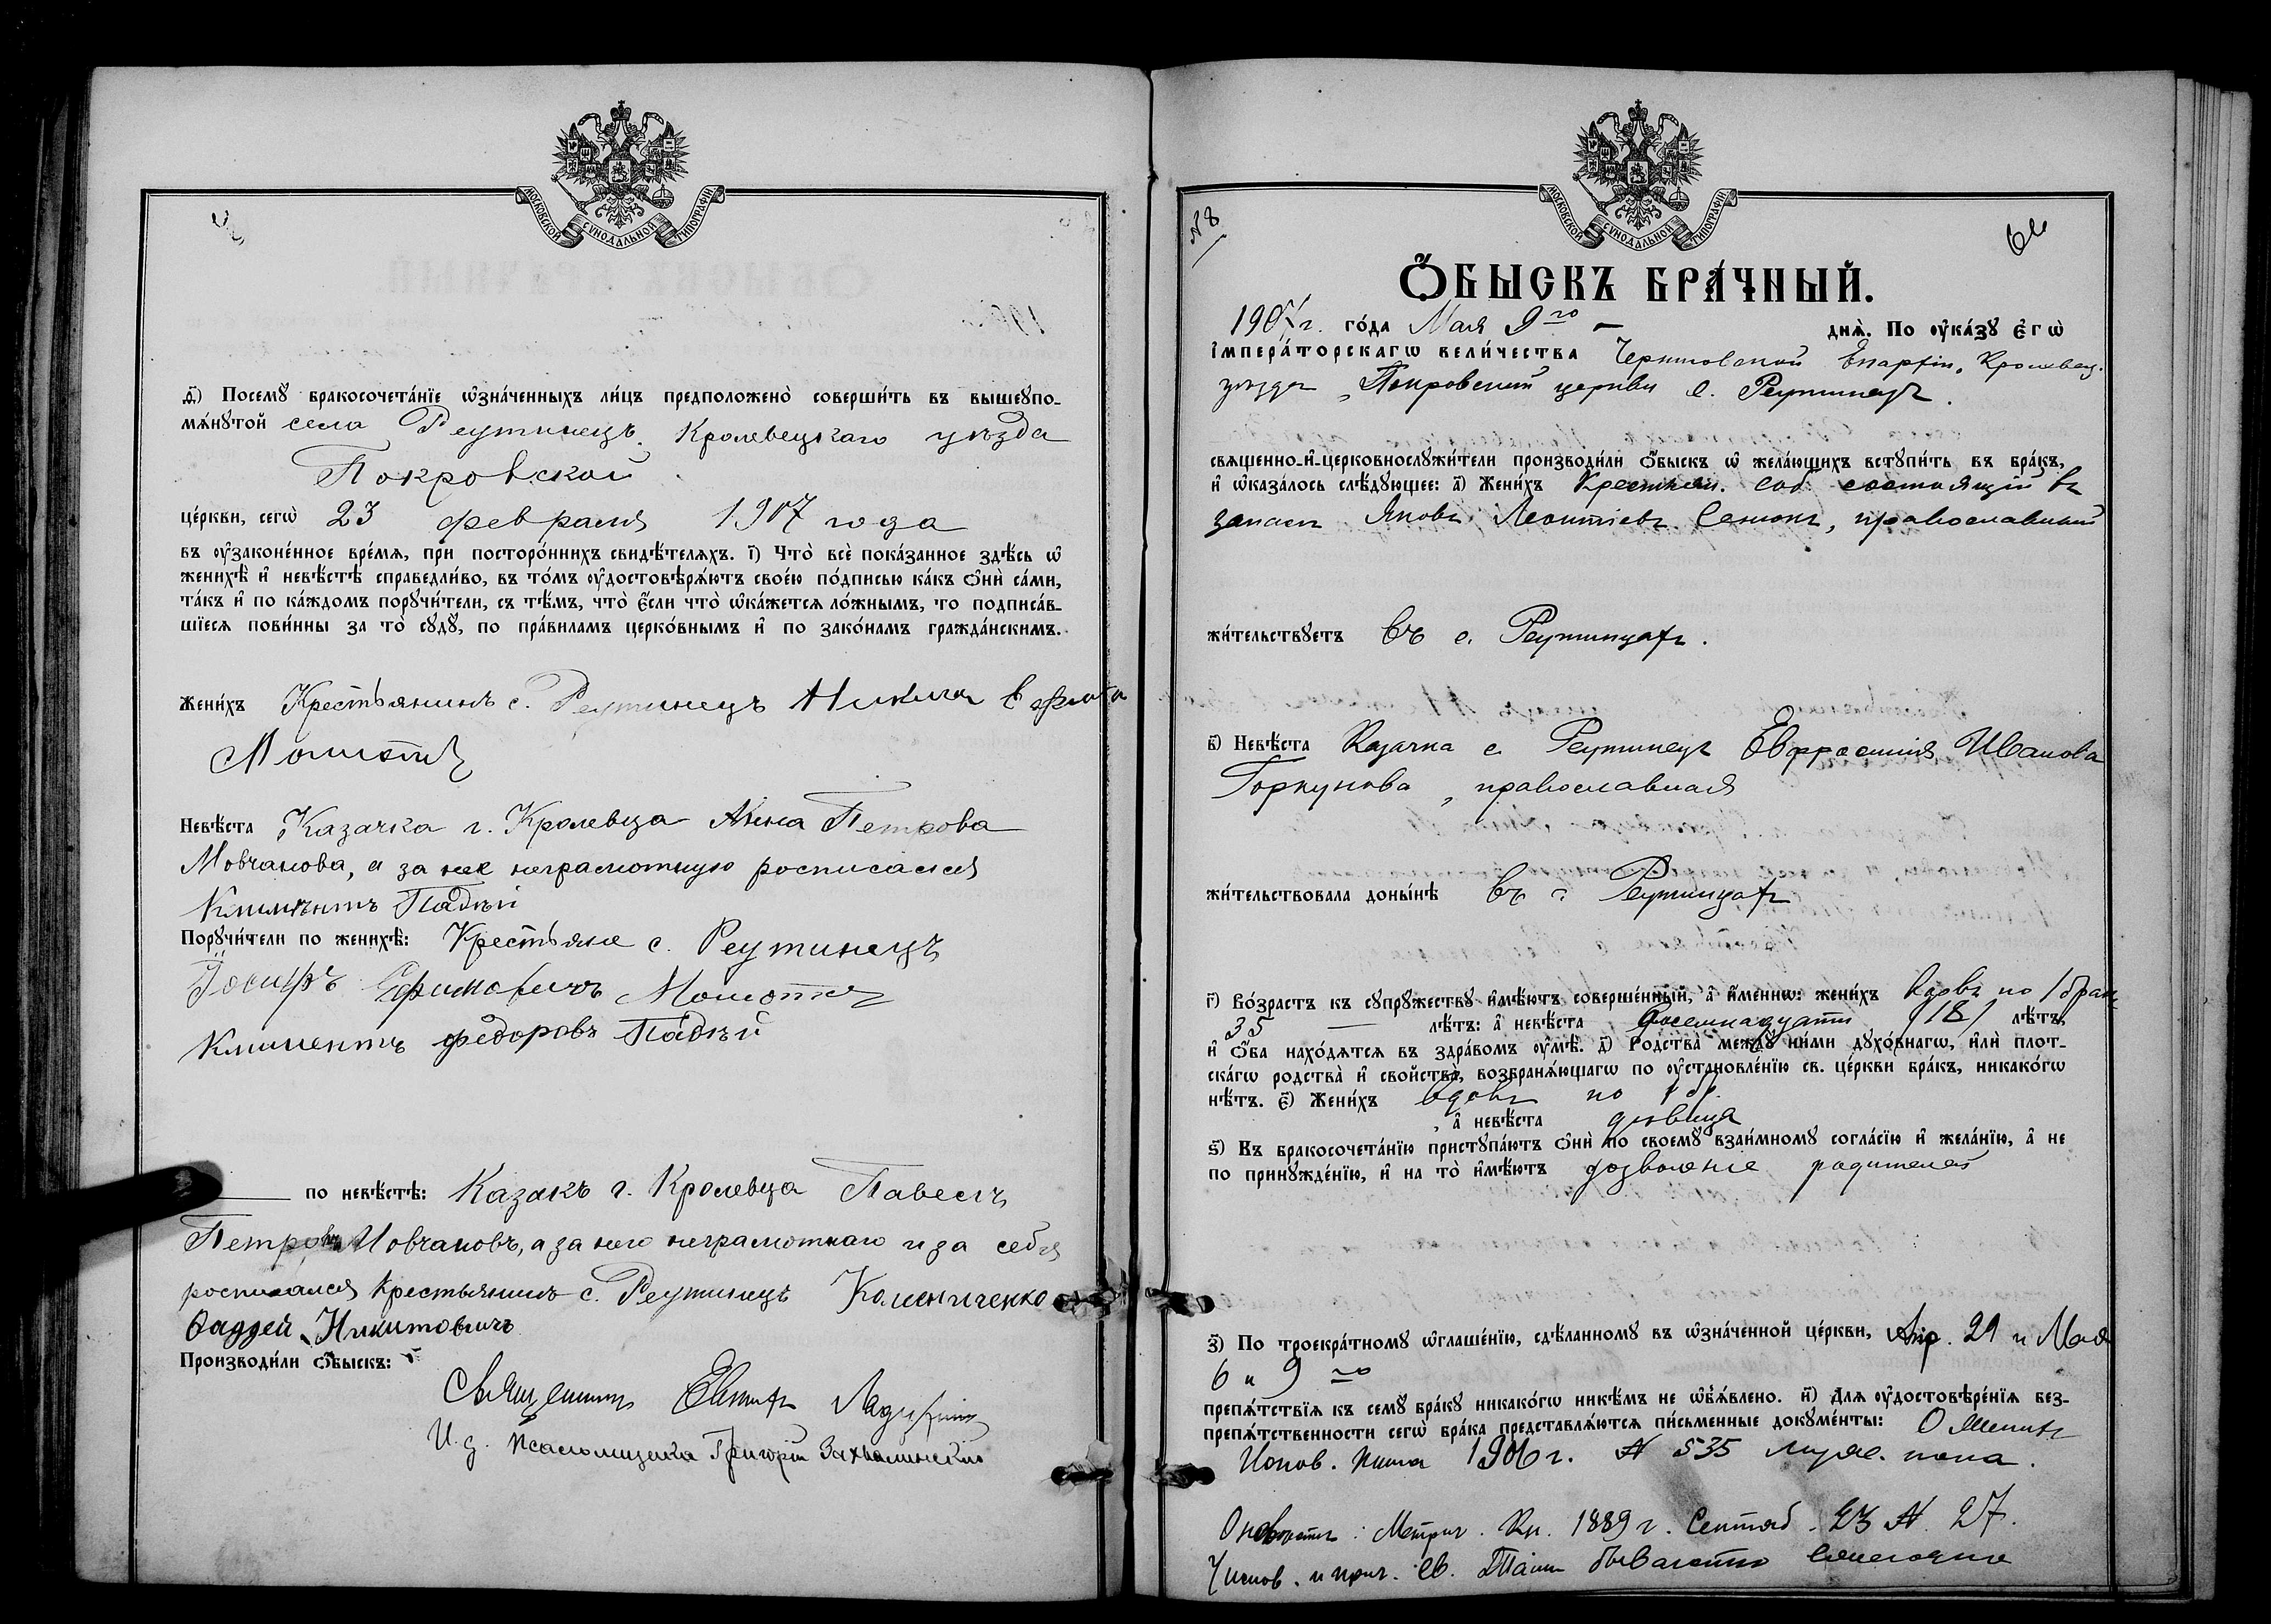 МОСКОВСКОЙ СѴНОДАЛЬНОЙ ТИПОГРАФІИ
д҃) Посемꙋ бракосочета́нїе ѡ҆зна́ченныхъ ли́цъ предположено̀ соверши́ть въ вышеꙋпо-
мѧ́нꙋтой села Реутинецъ Кролевецкаго уѣзда
Покровской
це́ркви, сегѡ̀ 23 февраля 1907 года
въ ᲂу҆зако́ненное вре́мѧ, при посторо́ннихъ свидѣ́телѧхъ. і҃) Что̀ всѐ пока́занное здѣ́сь ѡ҆
женихѣ̀ и҆ невѣ́стѣ справедли́во, въ то́мъ ᲂу҆достовѣрѧ́ютъ свое́ю по́дписью ка́къ ѻ҆нѝ са́ми,
та́къ и҆ по ка́ждомъ порꙋчи́тели, съ тѣ́мъ, что̀ є҆́сли что̀ ѡ҆ка́жетсѧ ло́жнымъ, то подписа́в-
шїесѧ пови́нны за то̀ сꙋдꙋ̀, по пра́виламъ церко́внымъ и҆ по зако́намъ гражда́нскимъ.
Жени́хъ Крестьянинъ с. Реутинецъ Никита
Невѣ́ста Казачка г. Кролевца Анна Петрова
Мовчанова, а за нее неграмотную росписался
Климентъ Падѣй
Порꙋчи́тели по женихѣ̀: Крестьяне с. Реутинецъ
Іосифъ Ефимовичъ
Климентъ Федоровъ Падѣй
по невѣ́стѣ: Казакъ г. Кролевца Павелъ
Петровъ Мовчановъ, а за него неграмотнаго и за себя
росписался крестьянинъ с. Реутинецъ Колениченко
Фаддей Никитовичъ
Производи́ли ѻ҆́быскъ:
Священникъ
И. д. псаломщика Григорій
МОСКОВСКОЙ СѴНОДАЛЬНОЙ ТИПОГРАФІИ
№ 8
Ѻ҆́БЫСКЪ БРА́ЧНЫЙ.
1907 г. го́да Мая 9го днѧ̀. По ᲂу҆ка́зꙋ є҆гѡ̀
і҆мпера́торскагѡ вели́чества Черниговской Епархіи, Кролевец.
уѣзда, Покровской церкви с. Реутинецъ.
свѧщенно-и҆-церковнослꙋжи́тели производи́ли ѻ҆́быскъ ѡ҆ жела́ющихъ встꙋпи́ть въ бра́къ,
и҆ ѡ҆каза́лось слѣ́дꙋющее: а҃) Жени́хъ Крестьян. соб. состоящій въ
запасѣ Яковъ Леонтіевъ Сенюкъ, православный
жи́тельствꙋетъ въ с. Реутинцахъ.
в҃) Невѣ́ста Казачка с. Реутинецъ Евфросинія Иванова
Горкунова, православная
жи́тельствовала доны́нѣ въ с. Реутинцахъ
г҃) Во́зрастъ къ сꙋпрꙋ́жествꙋ и҆мѣ́ютъ соверше́нный, а҆ и҆́менно: жени́хъ вдовъ по 1 бракѣ
35 — лѣ́тъ: а҆ невѣ́ста восемнадцати (18) лѣ́тъ,
и҆ ѻ҆́ба нахо́дѧтсѧ въ здра́вомъ ᲂу҆мѣ̀. д҃) Родства̀ междꙋ̀ ни́ми дꙋхо́внагѡ, и҆лѝ плот-
ска́гѡ родства̀ и҆ свойства̀, возбранѧ́ющагѡ по ᲂу҆становле́нїю св. це́ркви бра́къ, никако́гѡ
нѣ́тъ. є҃) Жени́хъ вдовъ по 1 бр.
, а҆ невѣ́ста дѣвица
ѕ҃) Къ бракосочета́нїю пристꙋпа́ютъ ѻ҆нѝ по своемꙋ̀ взаи́мномꙋ согла́сїю и҆ жела́нїю, а҆ не
по принꙋжде́нїю, и҆ на то̀ и҆мѣ́ютъ дозволеніе родителей
з҃) По троекра́тномꙋ ѡ҆глаше́нїю, сдѣ́ланномꙋ въ ѡ҆зна́ченной це́ркви, Апр. 29 и Мая
6 и 9 го
препѧ́тствїѧ къ семꙋ̀ бра́кꙋ никако́гѡ никѣ́мъ не ѡ҆б̾ѧ́влено. и҃) Длѧ ᲂу҆достовѣре́нїѧ без-
препѧ́тственности сегѡ̀ бра́ка представлѧ́ютсѧ пи́сьменные докꙋме́нты: О женихѣ
Испов. книга 1906 г. № 535 муж. пола.
О невѣстѣ: Метрич. Кн. 1889 г. Сентяб. 23 № 27.
У испов. и прич. св. Таин бываетъ ежегодно